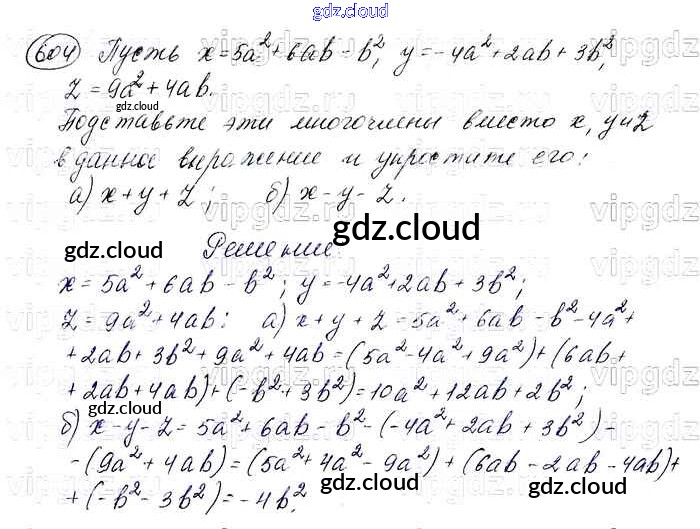 gdz.cloud
604 Пусть x = 5a² + 6ab - b², y = -4a² + 2ab + 3b²,
z = 9a² + 4ab.
gdz.cloud
Подставьте эти многочлены вместо x, y и z
в данное выражение и упростите его:
а) x + y + z; б) x - y - z.
gdz.cloud
gdz.cloud
Решение:
x = 5a² + 6ab - b²; y = -4a² + 2ab + 3b²;
z = 9a² + 4ab: а) x + y + z = 5a² + 6ab - b² - 4a² +
+ 2ab + 3b² + 9a² + 4ab = (5a² - 4a² + 9a²) + (6ab +
+ 2ab + 4ab) + (-b² + 3b²) = 10a² + 12ab + 2b²;
gdz.cloud
б) x - y - z = 5a² + 6ab - b² - (-4a² + 2ab + 3b²) -
- (9a² + 4ab) = (5a² + 4a² - 9a²) + (6ab - 2ab - 4ab) +
+ (-b² - 3b²) = -4b².
gdz.cloud
gdz.cloud